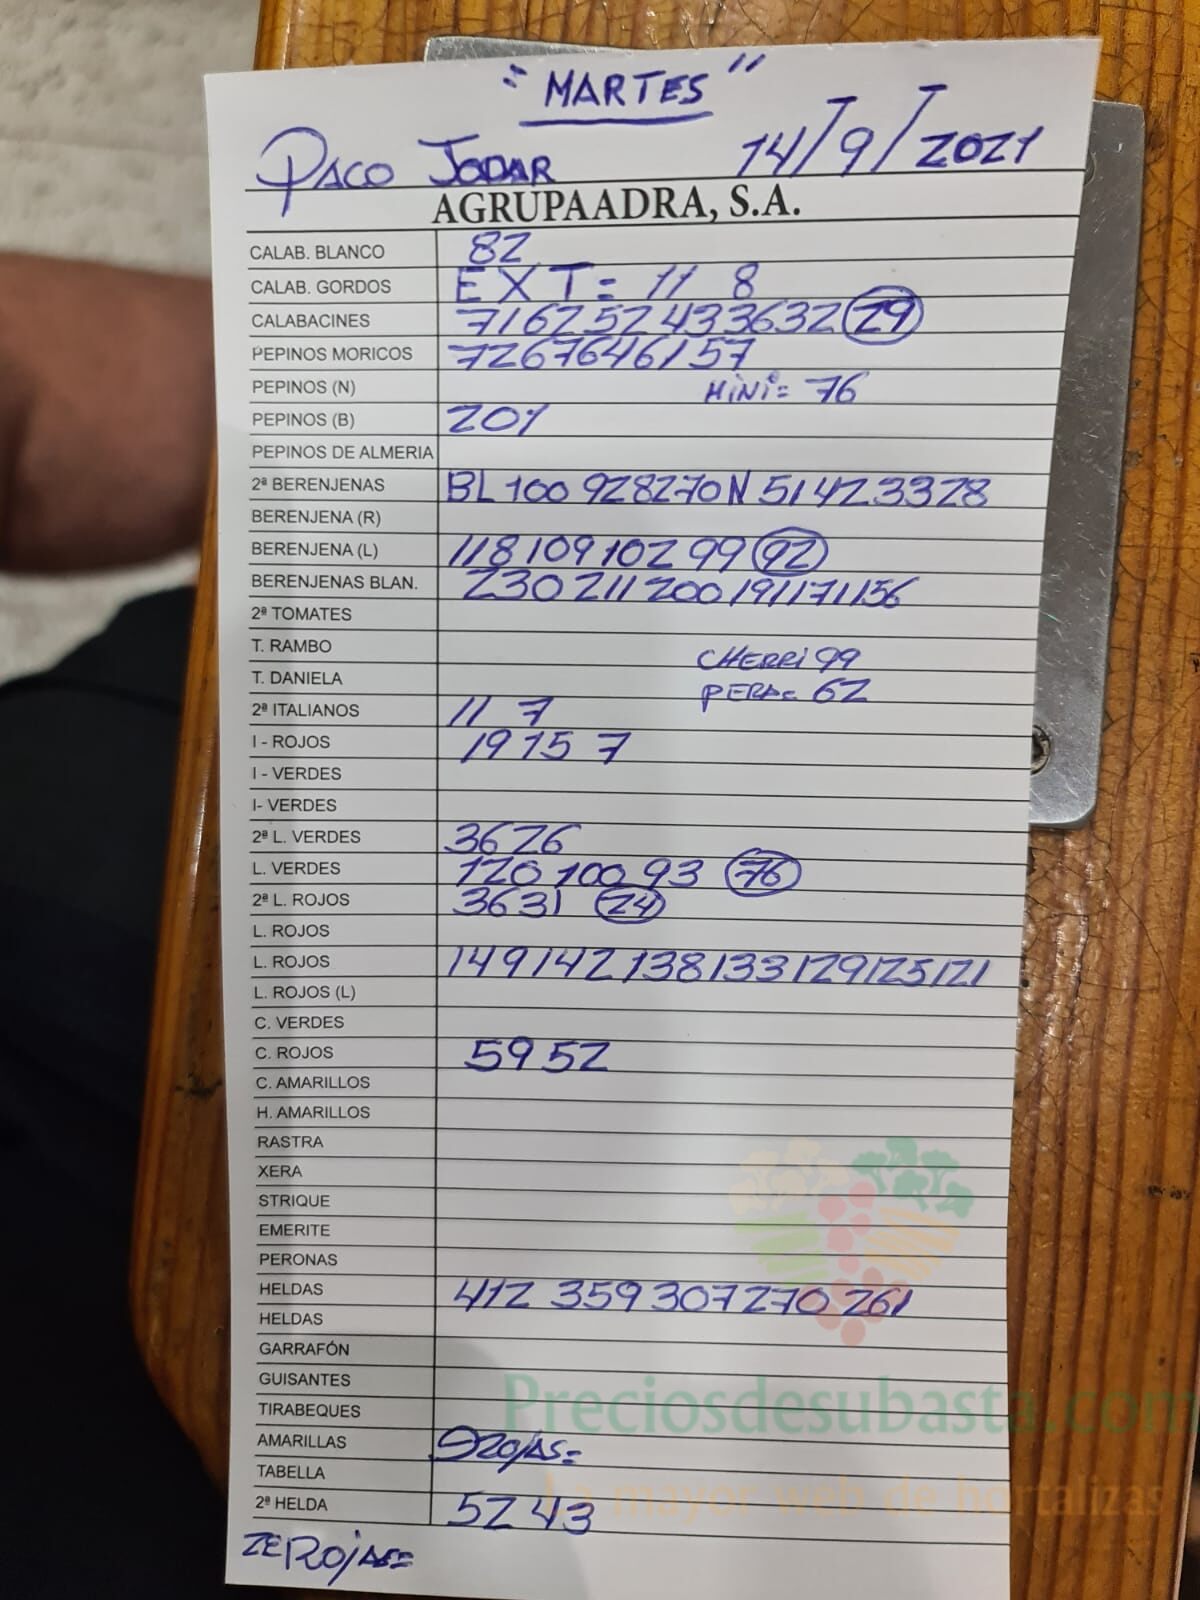 "MARTES"
PACO JODAR 14/9/2021
AGRUPAADRA, S.A.
CALAB. BLANCO 82
CALAB. GORDOS EXT= 11 8
CALABACINES 71 62 52 43 36 32 29
PEPINOS MORICOS 72 67 64 61 57
PEPINOS (N) MINI= 76
PEPINOS (B) 201
PEPINOS DE ALMERIA
2ª BERENJENAS BL 100 92 82 70 N 51 42 33 28
BERENJENA (R)
BERENJENA (L) 118 109 102 99 92
BERENJENAS BLAN. 230 211 200 191 171 156
2ª TOMATES
T. RAMBO CHERRI 99
T. DANIELA PERA= 62
2ª ITALIANOS 11 7
I - ROJOS 19 15 7
I - VERDES
I- VERDES
2ª L. VERDES 36 26
L. VERDES 120 100 93 76
2ª L. ROJOS 36 31 24
L. ROJOS
L. ROJOS 149 142 138 133 129 125 121
L. ROJOS (L)
C. VERDES
C. ROJOS 59 52
C. AMARILLOS
H. AMARILLOS
RASTRA
XERA
STRIQUE
EMERITE
PERONAS
HELDAS 412 359 307 270 261
HELDAS
GARRAFÓN
GUISANTES
TIRABEQUES
Preciosdesubasta.com
AMARILLAS
TABELLA
La mayor web de hortalizas
2ª HELDA 52 43
ROJAS=